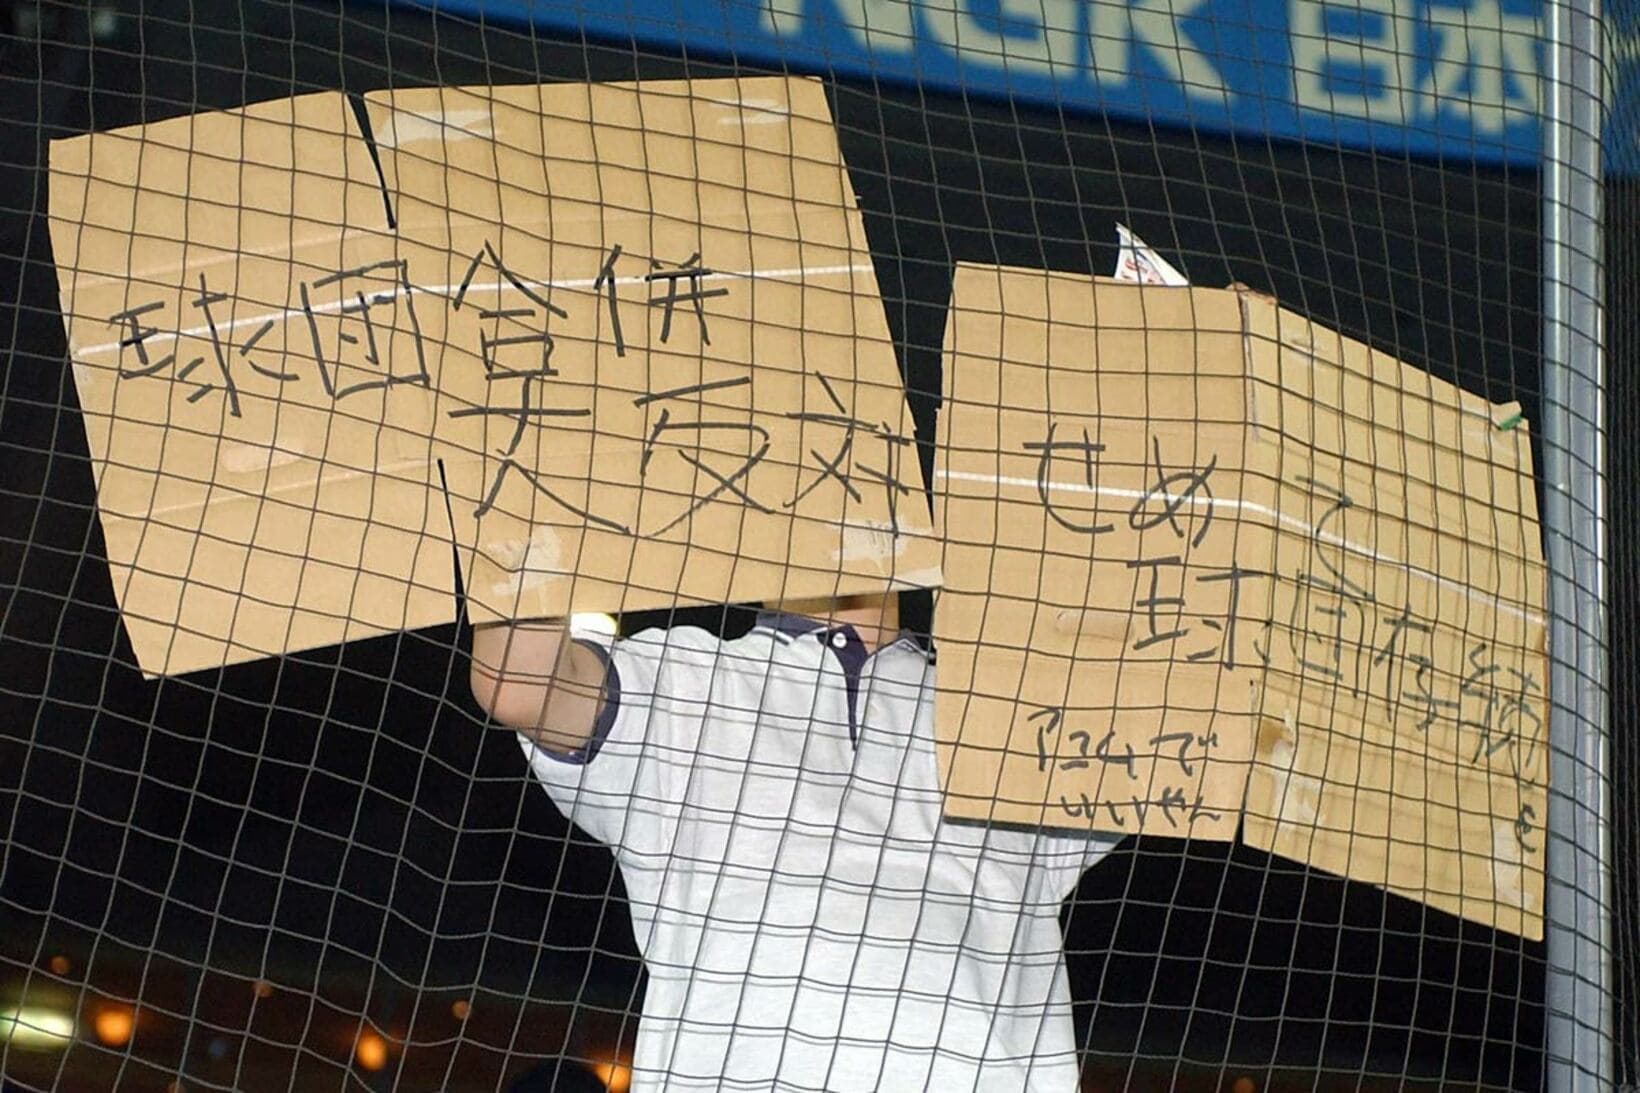 NGK 日本
球団合併
大反対
せめて
球団存続を
アコムで
いいやん